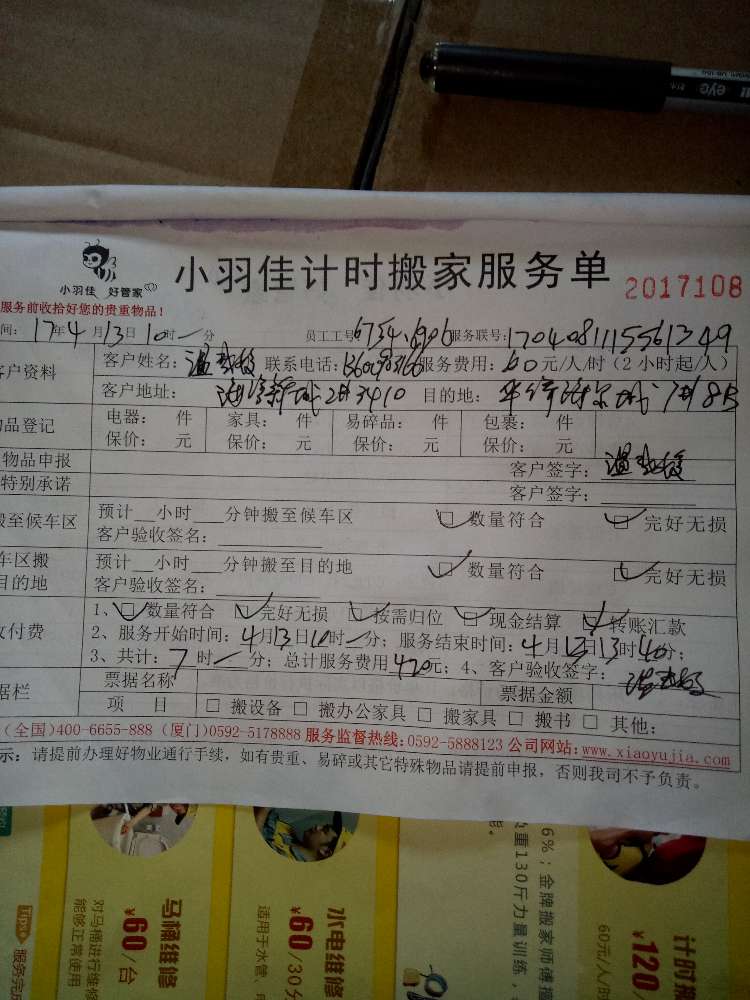 eye
小羽佳 好管家
小羽佳计时搬家服务单
2017108
服务前收拾好您的贵重物品！
间：17年4月13日10时一分 员工工号6754.6906服务联号：1704081115561349
客户资料
客户姓名： 联系电话： 服务费用：60元/人/时（2小时起/人）
客户地址： 2#3410 目的地：
物品登记
电器： 件 家具： 件 易碎品： 件 包裹： 件
保价： 元 保价： 元 保价： 元 保价： 元
物品申报 客户签字：
特别承诺 客户签字：
搬至候车区
预计__小时___分钟搬至候车区 数量符合 完好无损
客户验收签名：
车区搬
目的地
预计__小时___分钟搬至目的地 数量符合 完好无损
客户验收签名：
付费
1、数量符合 完好无损 按需归位 现金结算 转账汇款
2、服务开始时间：4月13日10时一分；服务结束时间：4月13日13时40分；
3、共计：7时一分；总计服务费用420元；4、客户验收签字：
据栏
票据名称 票据金额
项 目 □搬设备 □搬办公家具 □搬家具 □搬书 □其他：
(全国)400-6655-888 (厦门)0592-5178888 服务监督热线:0592-5888123 公司网站:www.xiaoyujia.com
示：请提前办理好物业通行手续，如有贵重、易碎或其它特殊物品请提前申报，否则我司不予负责。
Tips
服务完成
马桶维修
¥60/台
对马桶进行维修
能够正常使用
水电维修
¥60/30分
适用于水管
6%；金牌搬家师傅
重130斤力量训练，
能。
计时搬
¥120
60元/人/